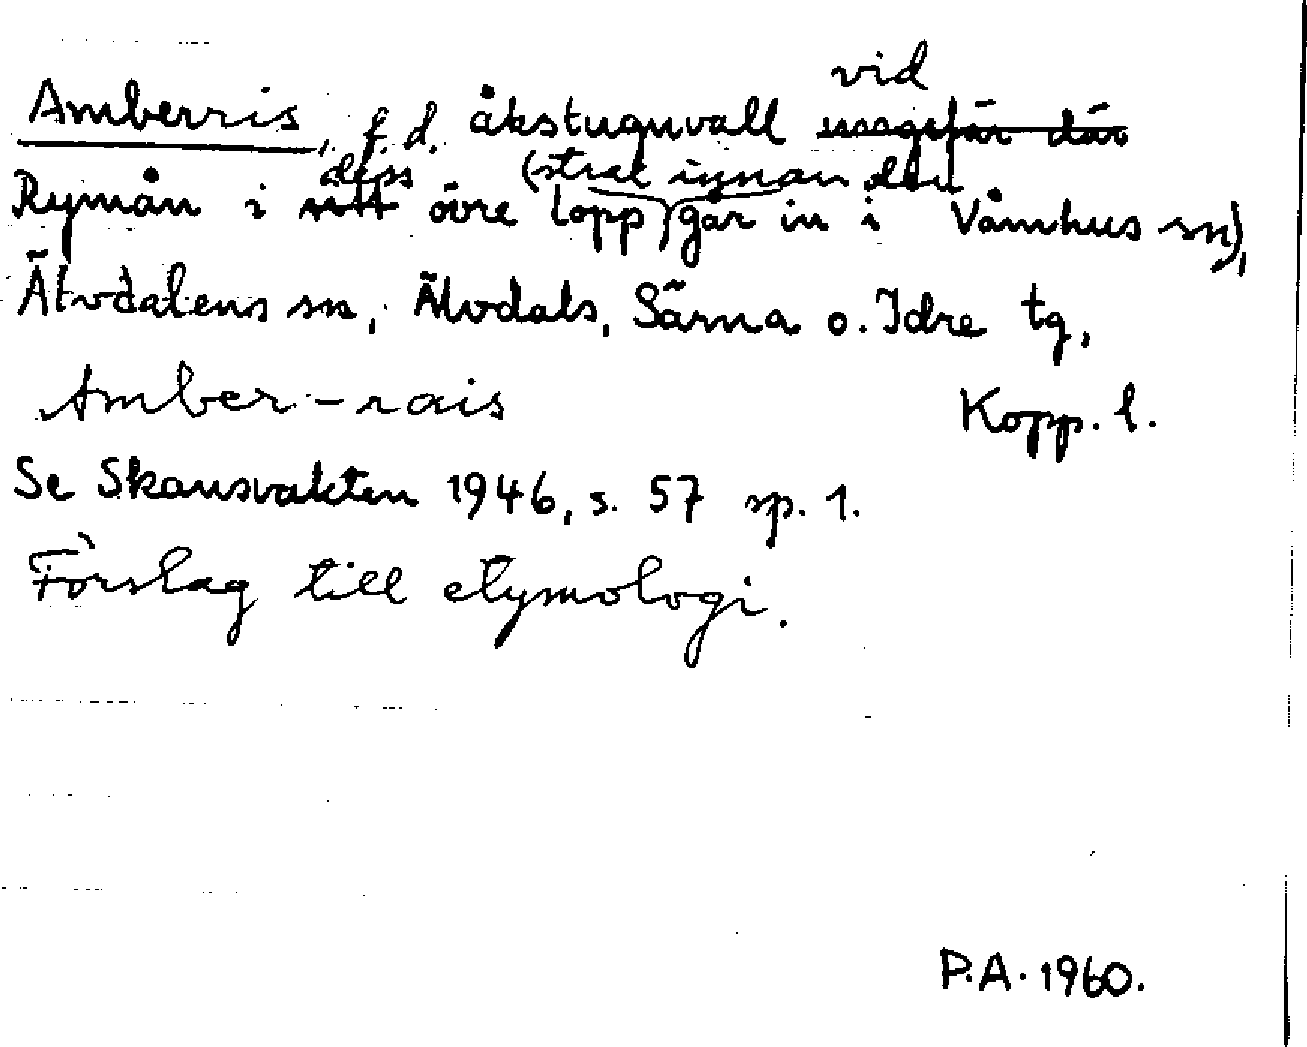 vid
Amberris, f. d. åkstuguvall ungefär där
dess (strax innan den
Rymån i sitt övre lopp går in i Våmhus sn),
Älvdalens sn, Älvdals, Särna o. Idre tg,
Amber-rais Kopp. l.
Se Skansvakten 1946, s. 57 sp. 1.
Förslag till etymologi.
P.A. 1960.